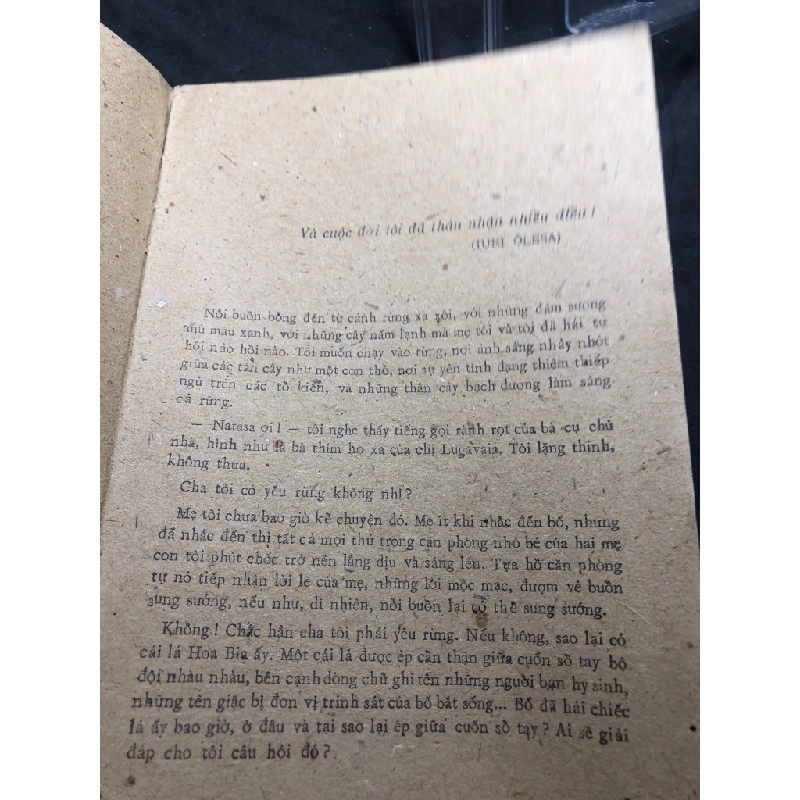 Và cuộc đời tôi đã thâu nhận nhiều điều !
(IURI ÔLESA)
Nỗi buồn bỗng đến từ cánh rừng xa xôi, với những đám sương
mù màu xanh, với những cây nấm lạnh mà mẹ tôi và tôi đã hái tự
hồi nào hồi nào. Tôi muốn chạy vào rừng, nơi ánh sáng nhảy nhót
giữa các tán cây như một con thỏ, nơi sự yên tĩnh đang thiêm thiếp
ngủ trên các tổ kiến, và những thân cây bạch dương làm sáng
cả rừng.
— Natasa ơi ! — tôi nghe thấy tiếng gọi rành rọt của bà cụ chủ
nhà, hình như là bà thím họ xa của chị Lugavaia. Tôi lặng thinh,
không thưa.
Cha tôi có yêu rừng không nhỉ ?
Mẹ tôi chưa bao giờ kể chuyện đó. Mẹ ít khi nhắc đến bố, nhưng
đã nhắc đến thì tất cả mọi thứ trong căn phòng nhỏ bé của hai mẹ
con tôi phút chốc trở nên lắng dịu và sáng lên. Tựa hồ căn phòng
tự nó tiếp nhận lời lẽ của mẹ, những lời mộc mạc, đượm vẻ buồn
sung sướng, nếu như, dĩ nhiên, nỗi buồn lại có thể sung sướng.
Không ! Chắc hẳn cha tôi phải yêu rừng. Nếu không, sao lại có
cái lá Hoa Bia ấy. Một cái lá được ép cẩn thận giữa cuốn sổ tay bộ
đội nhàu nhàu, bên cạnh dòng chữ ghi tên những người bạn hy sinh,
những tên giặc bị đơn vị trinh sát của bố bắt sống... Bố đã hái chiếc
lá ấy bao giờ, ở đâu và tại sao lại ép giữa cuốn sổ tay ? Ai sẽ giải
đáp cho tôi câu hỏi đó ?